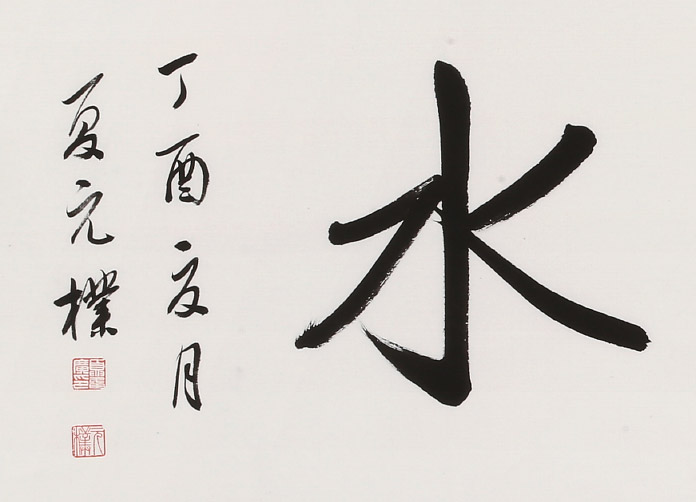 水
丁酉亥月
夏元樸